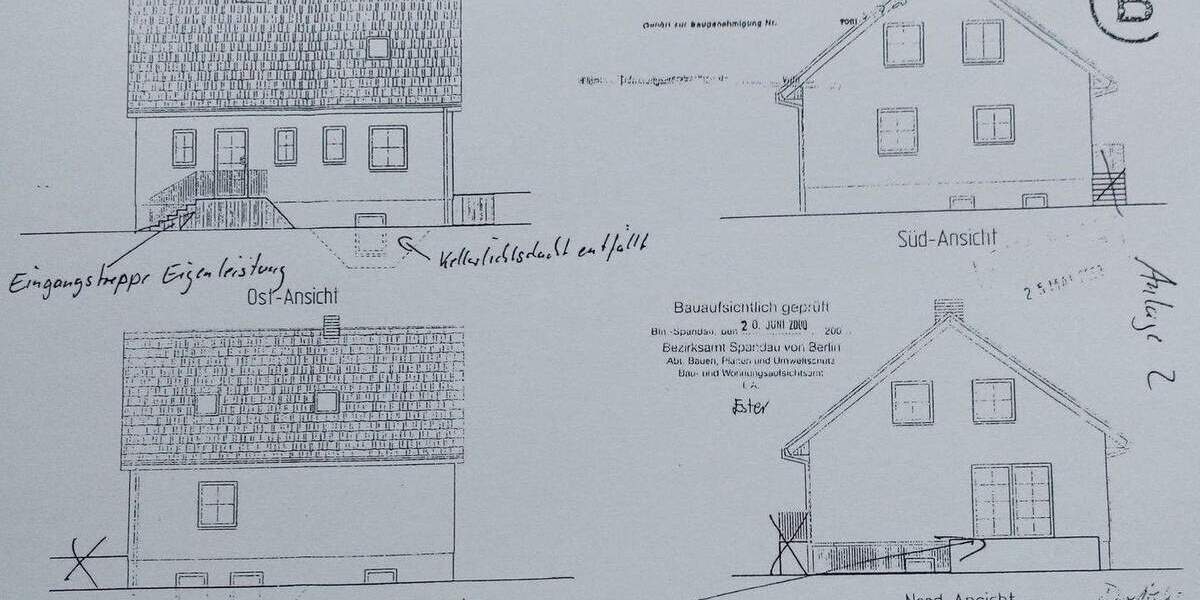 Gehört zur Baugenehmigung Nr. vom
B
Süd-Ansicht
Eingangstreppe Eigenleistung
Kellerlichtschacht entfällt
Ost-Ansicht
Anlage 2
Bauaufsichtlich geprüft
Bln.-Spandau, den 20. JUNI 2000 200
Bezirksamt Spandau von Berlin
Abt. Bauen, Planen und Umweltschutz
Bau- und Wohnungsaufsichtsamt
I. A.
Ester
Nord-Ansicht